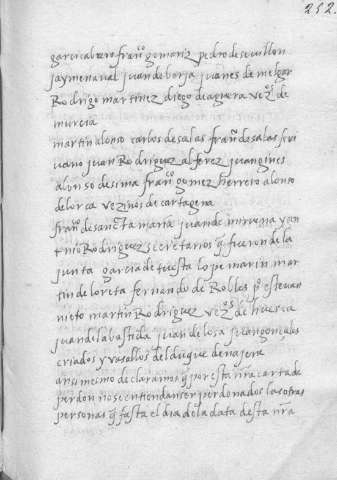 252.
garcia brero fran^co gomariz pedro de sevillon
jayme naval juan de borja juanes de melgar
Rodrigo martinez diego de aguera vez^os de
murcia
martin alonso carlos de salas fran^co de salas scri
vano juan Rodriguez alferez juan gines
alonso de sima fran^co gomez herrero alonso
de lorca vezinos de cartagena
fran^co de sancta maria juan de murviena y an
tonio Rodriguez secretarios q̃ fueron de la
junta garcia de tuesta lope marin mar
tin de loreta fernando de Robles p^o estevan
nieto martin Rodriguez vez^os de huesca
juan de la bastida juan de losa gonçales
criados y vasallos del duque de najera
ansimesmo declaramos q̃ por esta n̄ra carta de
perdon no se entiendan ser perdonados las otras
personas q̃ fasta el dia de la data desta n̄ra